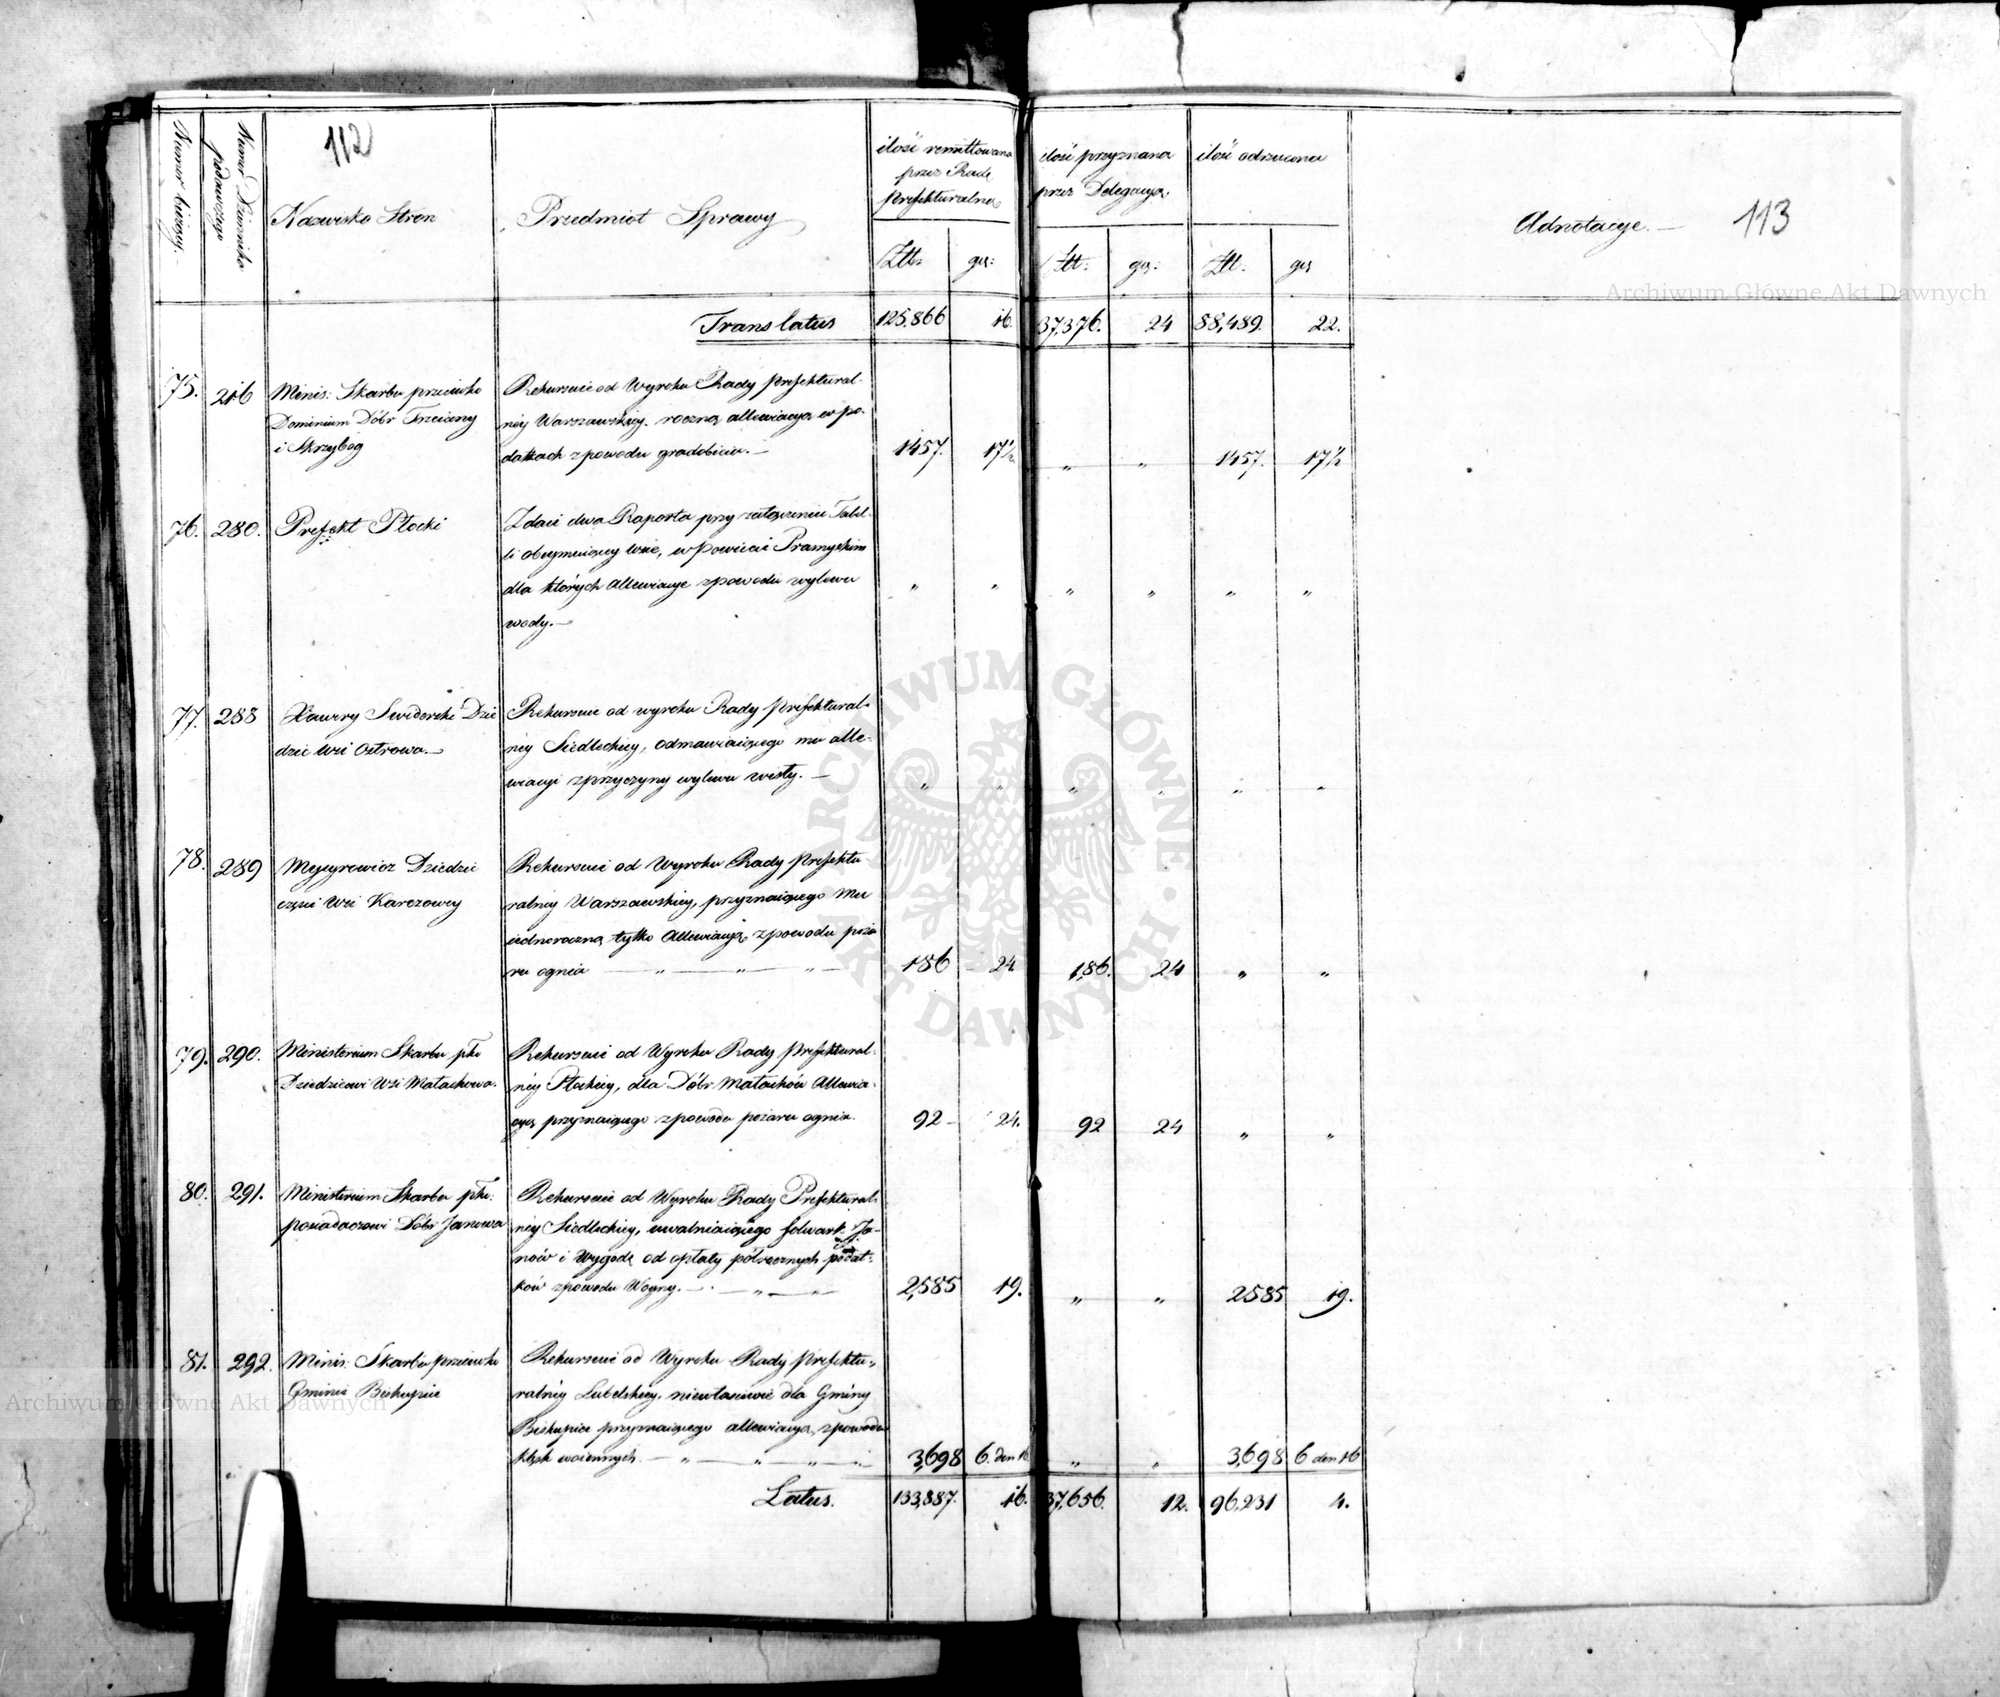 112
113
Numer bieżący.
Numer Dziennika podawczego
Nazwisko Stron
Przedmiot Sprawy
ilość remittowana przez Radę Prefekturalną
ilość przyznana przez Delegacyą.
ilość odrzucona
Adnotacye.
Złt: gr: Złt: gr: Złt. gr
Translatus 125,866 16. 37,376. 24 88,489. 22.
75. 216 Minis: Skarbu przeciwko Rekursuie od Wyroku Rady Prefektural-
Dominium Dóbr Trzciany ney Warszawskiey. roczną allewiacyą w po-
i Skrzybog datkach z powodu gradobicia. — 1457. 17½ „ „ 1457. 17½
76. 280. Prefekt Płocki Zdaie dwa Raporta przy załączeniu Tabel-
li obeymuiącey wsie, w powiecie
dla których allewiacye z powodu wylewu „ „ „ „ „ „
wody. —
77. 288 Xawery Swiderski Dzie Rekursuie od wyroku Rady Prefektural-
dzic Wsi Ostrowa. — ney Siedleckiey, odmawiaiącego mu alle-
wiacyi z przyczyny wylewu wisły. — „ „ „ „ „ „
78. 289 Dziedzic Rekursuie od Wyroku Rady Prefektu-
części Wsi Karczowey ralney Warszawskiey, przyznaiącego Mu
iednoroczną tylko Allewiacyą, z powodu poża
ru ognia — „ — „ — „ — 186 24 186. 24 „ „
79. 290. Ministerium Skarbu pko Rekursuie od Wyroku Rady Prefektural-
Dziedzicowi Wsi Małachowa. ney Płockiey, dla Dóbr Małachów Allewia-
cyą przyznaiącego z powodu pożaru ognia. 92 — 24. 92 24 „ „
80. 291. Ministerium Skarbu pko: Rekursuie od Wyroku Rady Prefektural-
posiadaczowi Dóbr Janowa ney Siedleckiey, uwalniaiącego folwark Ja-
nów i Wygodę od opłaty półrocznych podat-
ków z powodu Woyny. — „ — „ — 2,585 19. „ „ 2585 19.
81. 292. Minis: Skarbu przeciwko Rekursuie od Wyroku Rady Prefektu-
Gminie Biskupice ralney Lubelskiey, niewłaściwie dla Gminy
Biskupice przyznaiącego allewiacyą, z powodu
klęsk woiennych — „ — „ — „ — 3,698 6. den 16 „ „ 3,698 6 den 16
Latus. 133,887. 16. 37,656. 12. 96,231 4.
Archiwum Główne Akt Dawnych
ARCHIWUM GŁÓWNE AKT DAWNYCH
Archiwum Główne Akt Dawnych